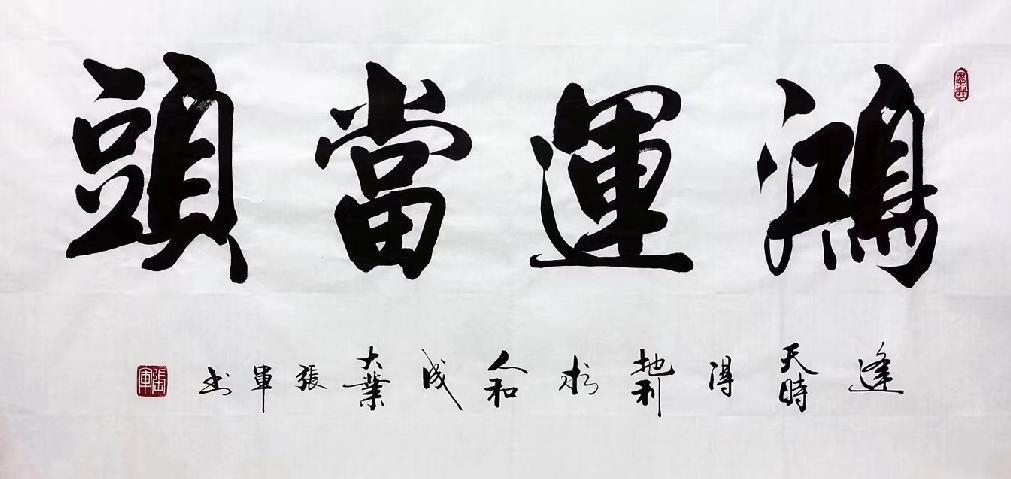 鴻運當頭
逢天時得地利於人和成大業張軍书